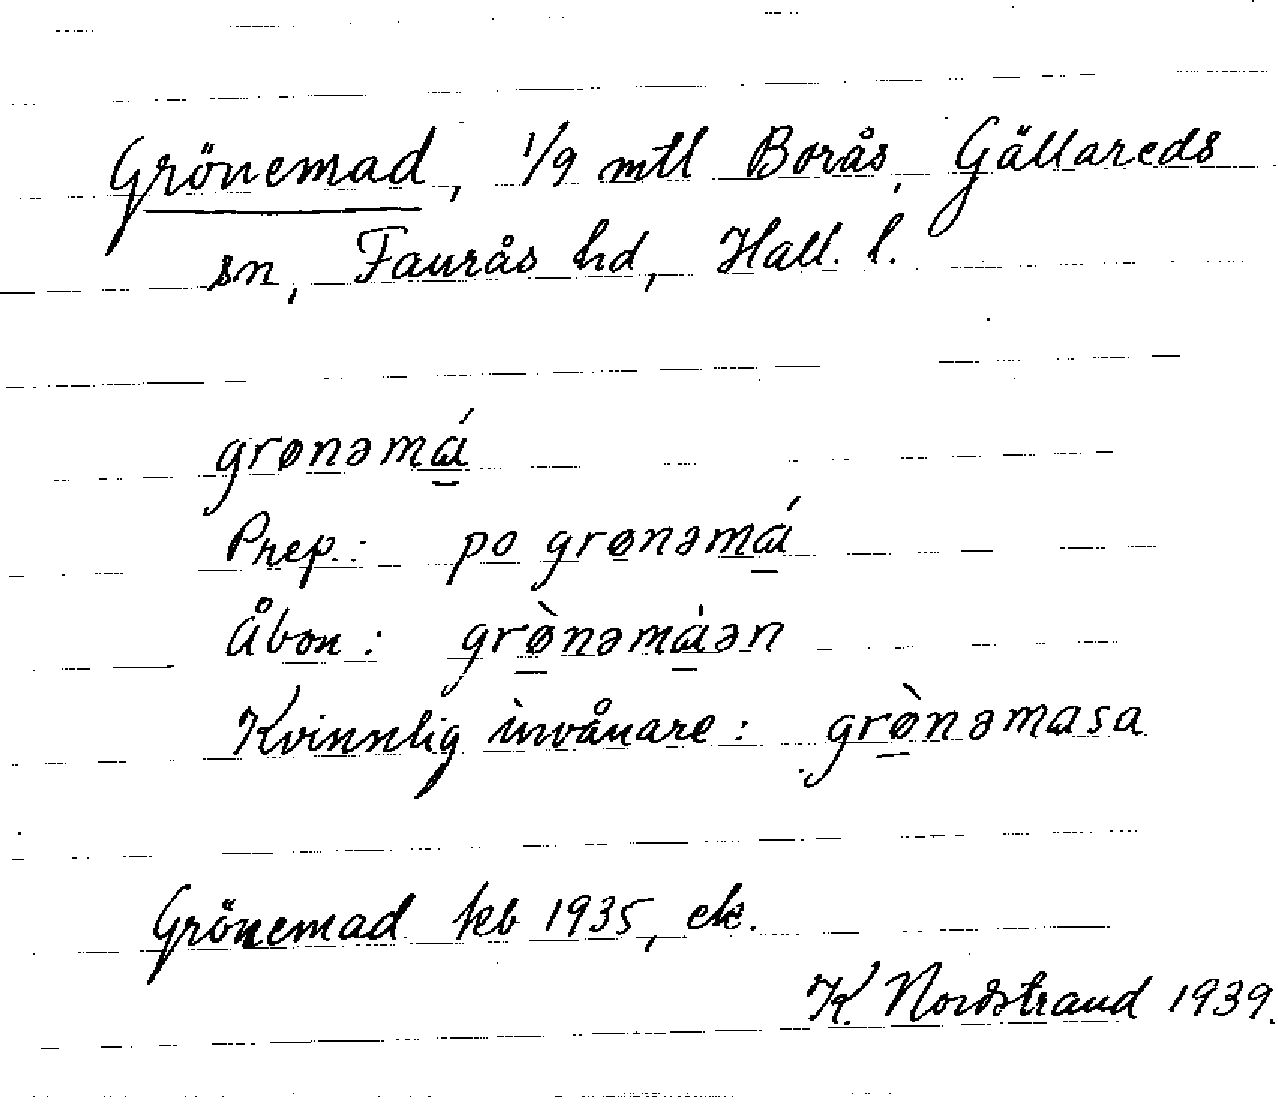 Grönemad, 1/9 mtl Borås, Gällareds
sn, Faurås hd, Hall. l.
grønəmá̱
Prep.: po grønəmá̱
Åbon: grø̱̀nəmá̱ən
Kvinnlig invånare: grø̱̀nəmasa
Grönemad kb 1935, ek.
K. Nordstrand 1939.